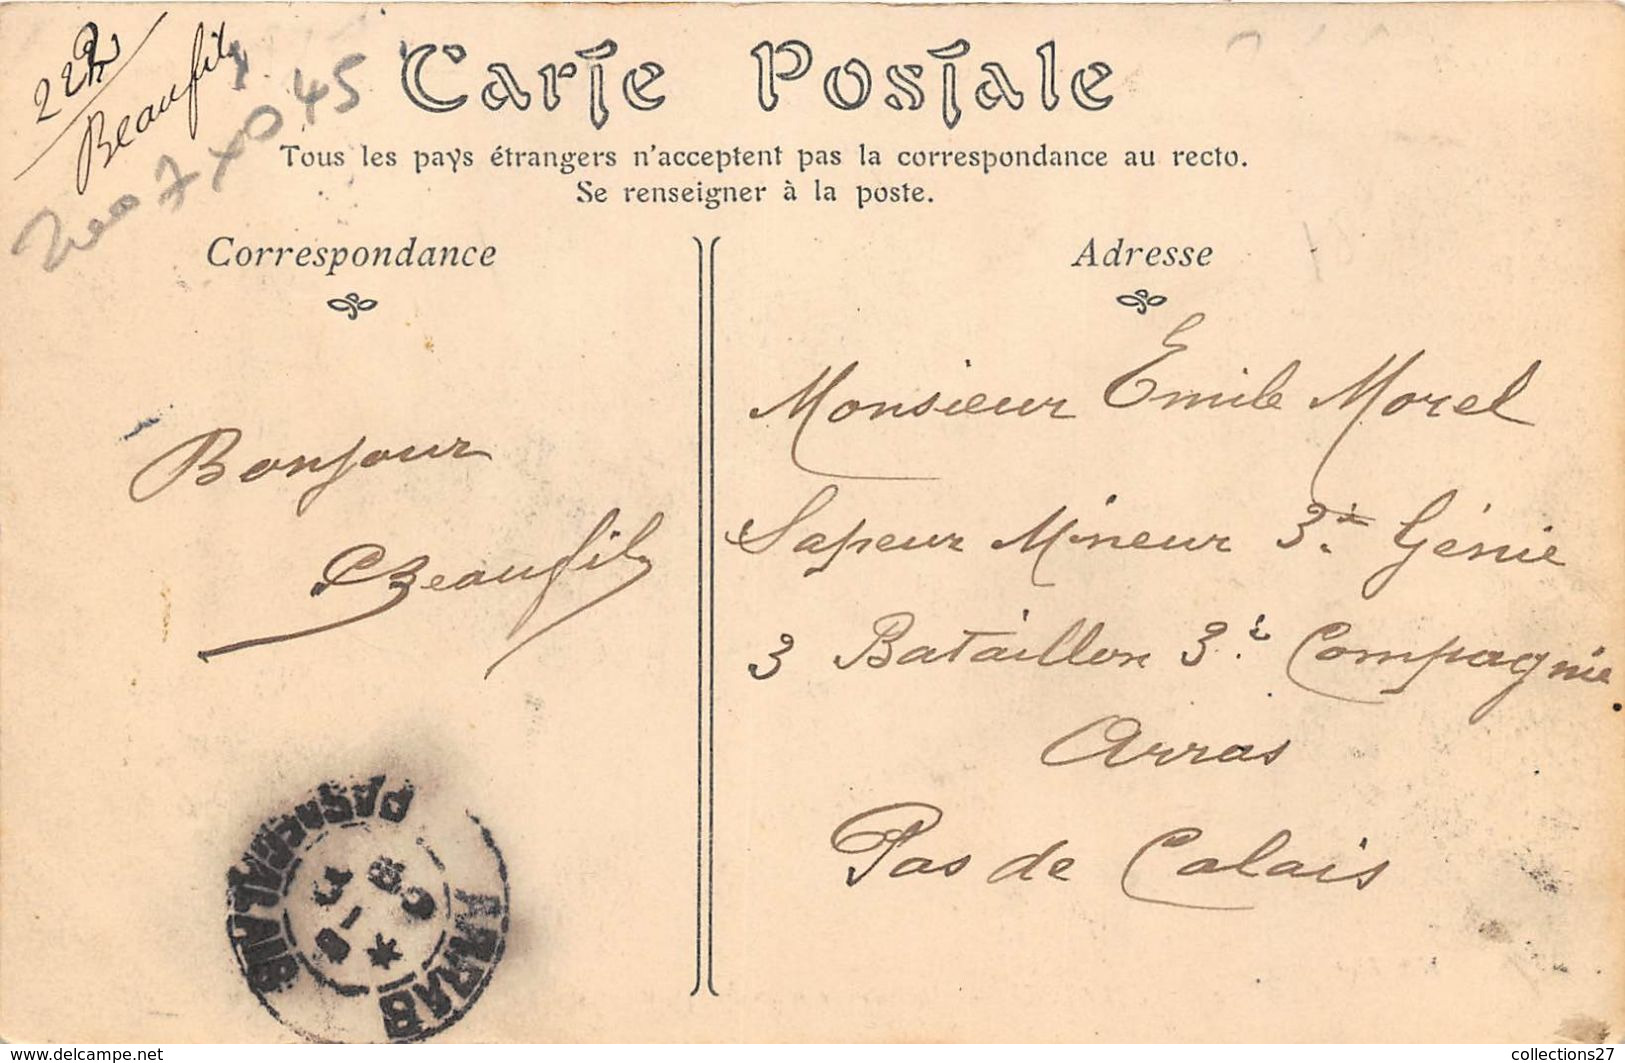 Beaufils
Carte Postale
Tous les pays étrangers n'acceptent pas la correspondance au recto.
Se renseigner à la poste.
Correspondance
Bonjour
Beaufils
Adresse
Monsieur Emile Morel
Sapeur Mineur 3e Génie
3 Bataillon 3e Compagnie
Arras
Pas de Calais
ARRAS
PAS-DE-CALAIS
www.delcampe.net
collections27